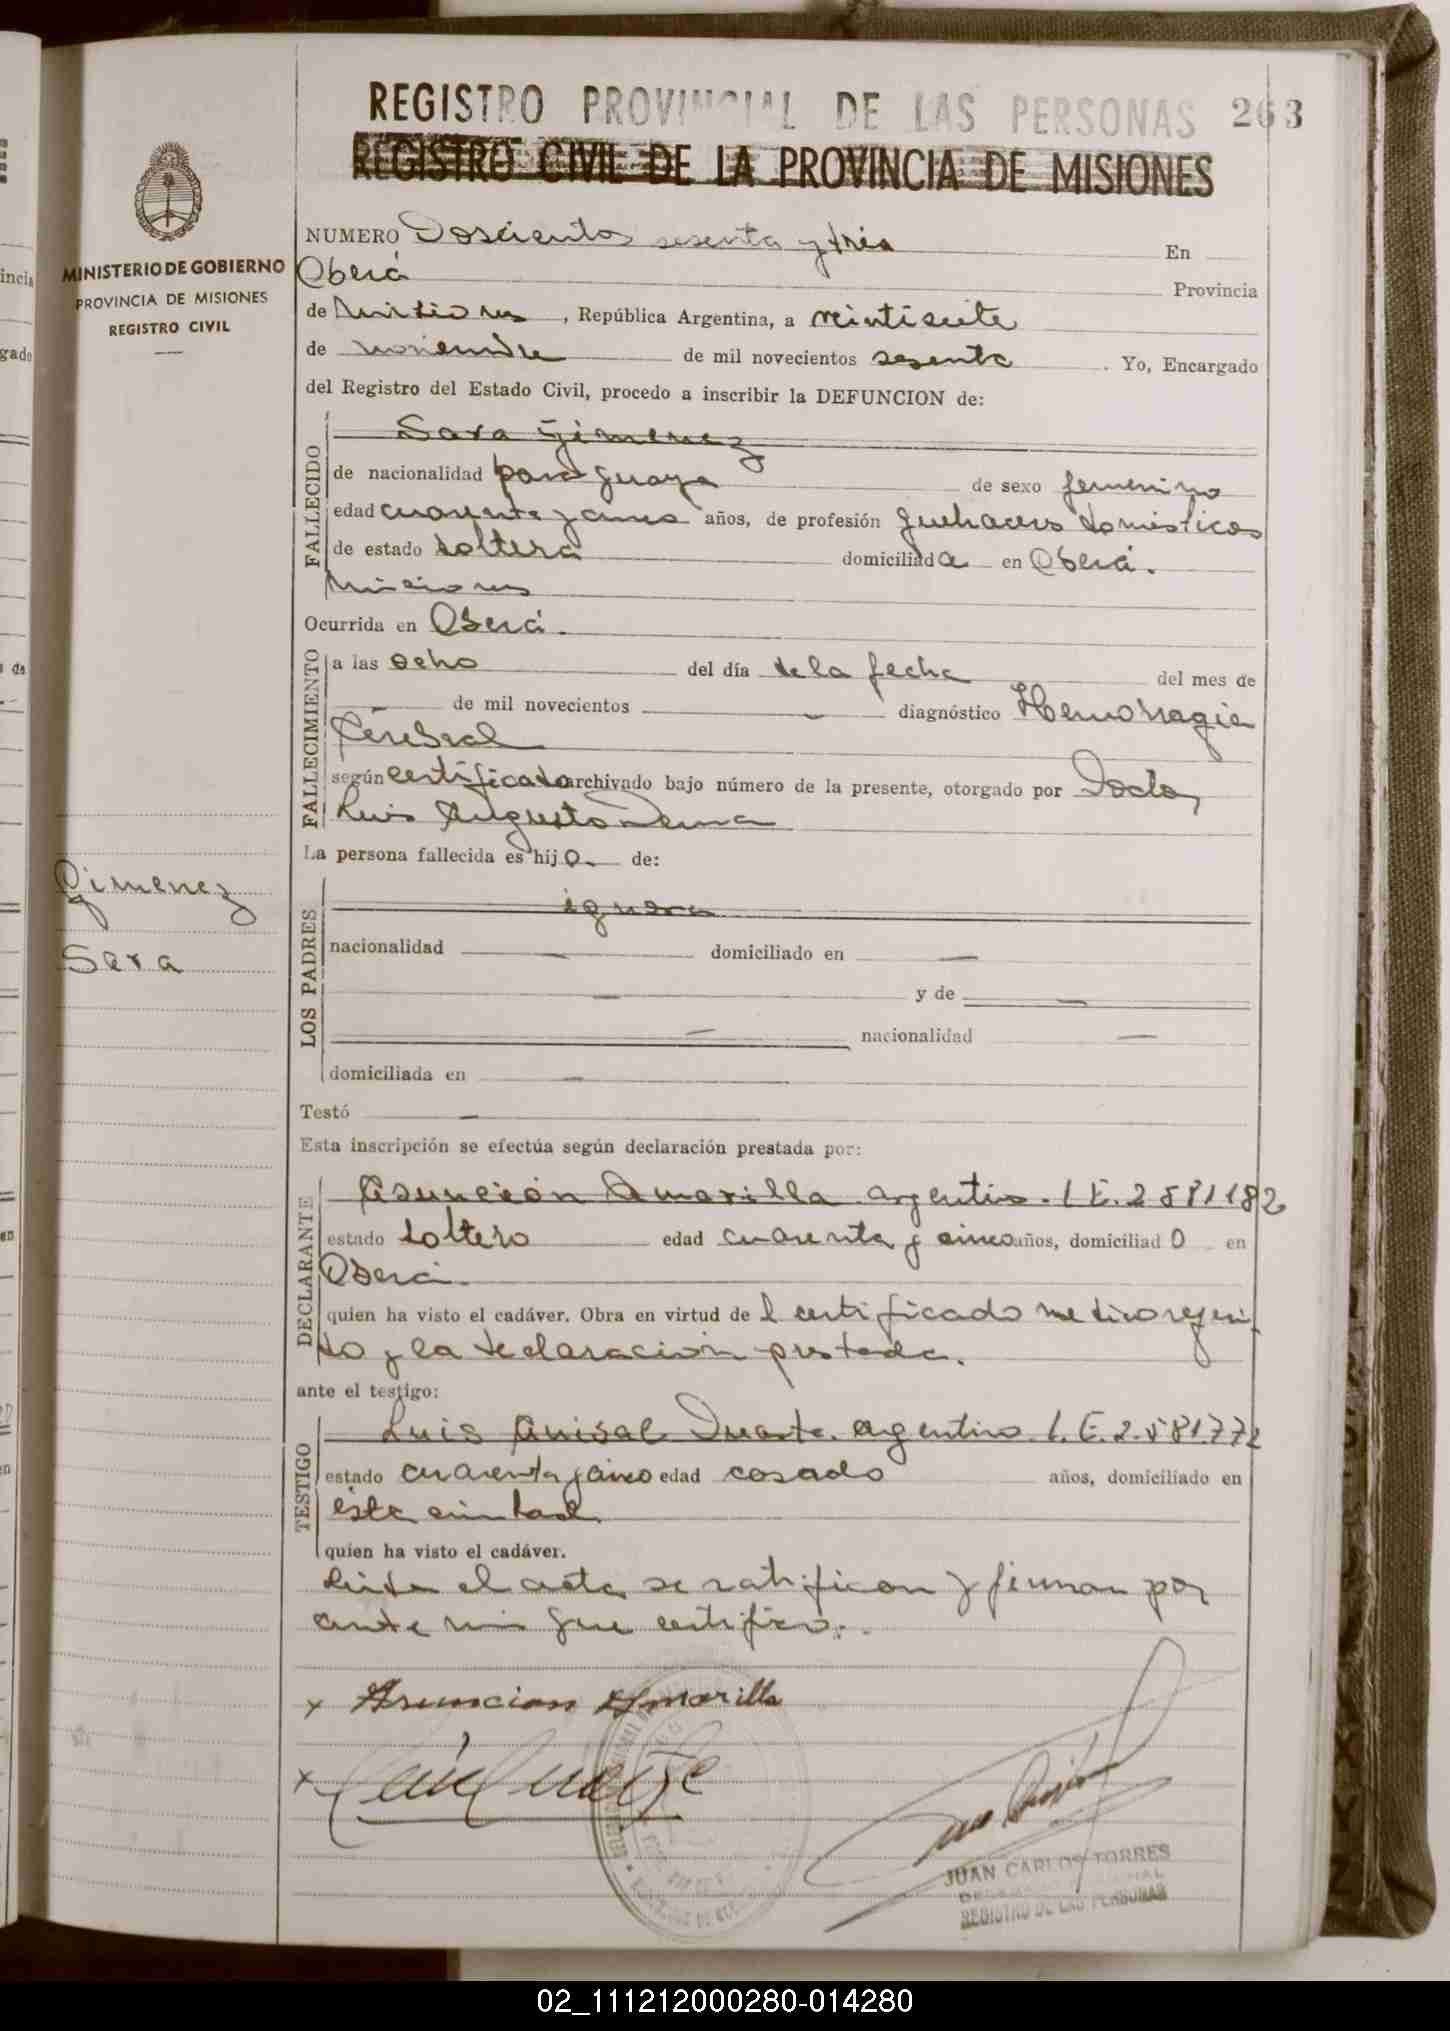 REGISTRO PROVINCIAL DE LAS PERSONAS 263
REGISTRO CIVIL DE LA PROVINCIA DE MISIONES
MINISTERIO DE GOBIERNO
PROVINCIA DE MISIONES
REGISTRO CIVIL
NUMERO Doscientos sesenta y tres En
Oberá Provincia
de Misiones, República Argentina, a veintisiete
de noviembre de mil novecientos sesenta. Yo, Encargado
del Registro del Estado Civil, procedo a inscribir la DEFUNCION de:
FALLECIDO
Sara Gimenez
de nacionalidad paraguaya de sexo femenino
edad cuarenta y cinco años, de profesión quehaceres domésticos
de estado soltera domiciliada en Oberá.
Misiones
Ocurrida en Oberá.
FALLECIMIENTO
a las ocho del día de la fecha del mes de
de mil novecientos diagnóstico Hemorragia
Cerebral
según certificado archivado bajo número de la presente, otorgado por Doctor
Luis Augusto
La persona fallecida es hija de:
Gimenez
Sara
LOS PADRES
ignora
nacionalidad domiciliado en
y de
nacionalidad
domiciliada en
Testó
Esta inscripción se efectúa según declaración prestada por:
DECLARANTE
Asunción Amarilla argentino. L E. 2581182
estado soltero edad cuarenta y cinco años, domiciliado en
Oberá.
quien ha visto el cadáver. Obra en virtud del certificado medico referi
do y la declaración prestada.
ante el testigo:
TESTIGO
Luis Anibal Duarte. argentino. L. E. 2.581.772
estado cuarenta y cinco edad casado años, domiciliado en
esta ciudad
quien ha visto el cadáver.
Leida el acta se ratifican y firman por
ante mi que certifico.
x Asuncion Amarilla
x
JUAN CARLOS TORRES
REGISTRO DE LAS PERSONAS
02_111212000280-014280